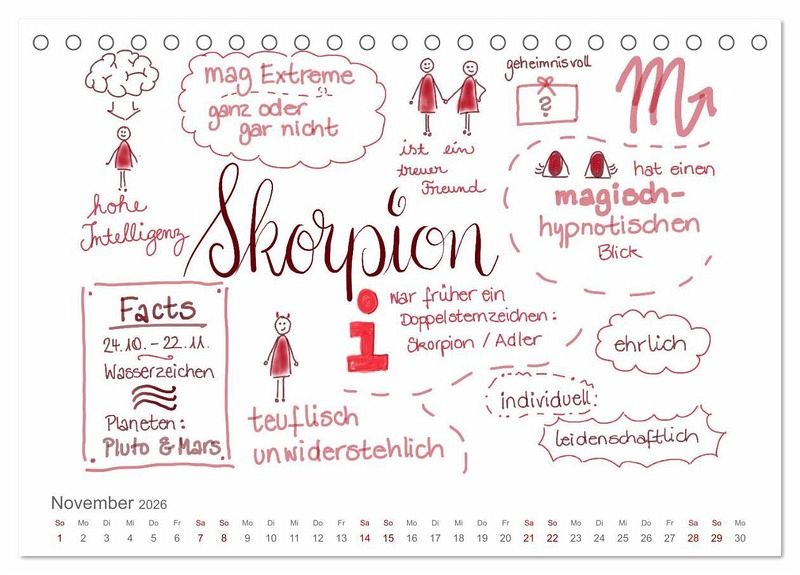 mag Extreme
ganz oder
gar nicht
hohe
Intelligenz
ist ein
treuer
Freund
geheimnisvoll
?
hat einen
magisch-
hypnotischen
Blick
Skorpion
Facts
24.10. - 22.11.
Wasserzeichen
Planeten:
Pluto & Mars
teuflisch
unwiderstehlich
i
war früher ein
Doppelsternzeichen:
Skorpion / Adler
ehrlich
individuell:
leidenschaftlich
November 2026
So Mo Di Mi Do Fr Sa So Mo Di Mi Do Fr Sa So Mo Di Mi Do Fr Sa So Mo Di Mi Do Fr Sa So Mo
1 2 3 4 5 6 7 8 9 10 11 12 13 14 15 16 17 18 19 20 21 22 23 24 25 26 27 28 29 30